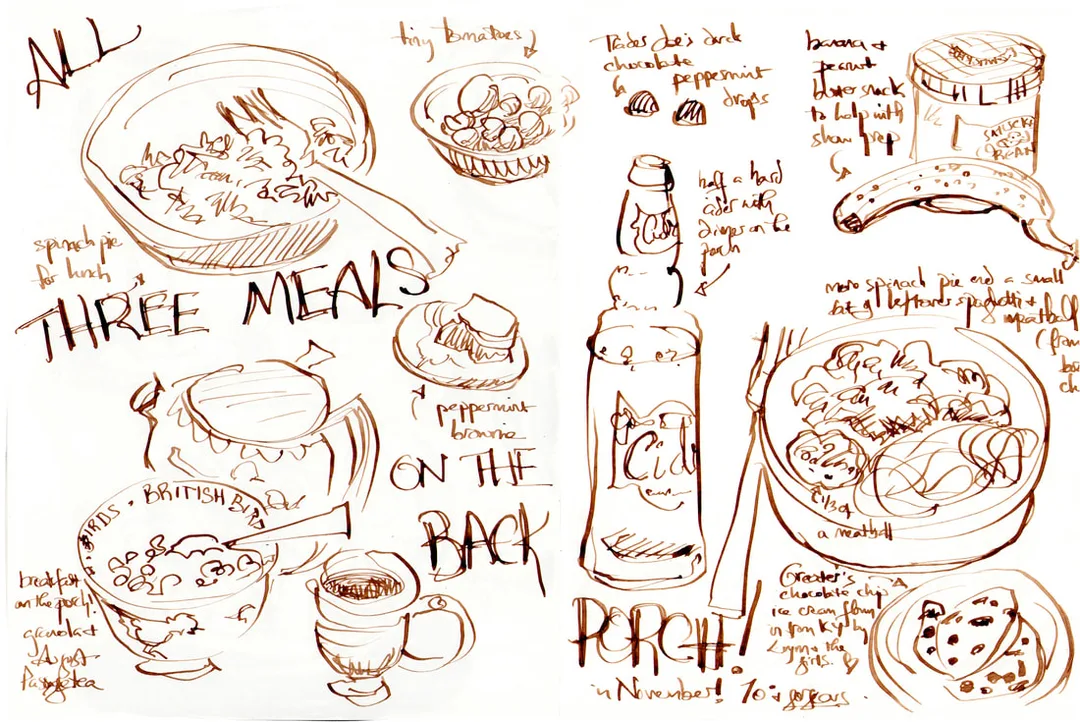 ALL
tiny tomatoes
spinach pie
for lunch
THREE MEALS
peppermint
brownie
ON THE
BACK
BIRDS • BRITISH BIRD
Owl
breakfast
on the porch!
granola +
August
tea
Trader Joe's dark
chocolate
peppermint
drops
banana +
peanut
butter snack
to help with
show prep
half a hard
cider with
dinner on the
porch
Cid
Cid
more spinach pie and a small
bit of leftover spaghetti +
meatball
(from
1/3 of
a meatball
PORCH!
in November! 70° + gorgeous.
Graeter's
chocolate chip
ice cream flown
in from KY by
Lynn + the
girls.